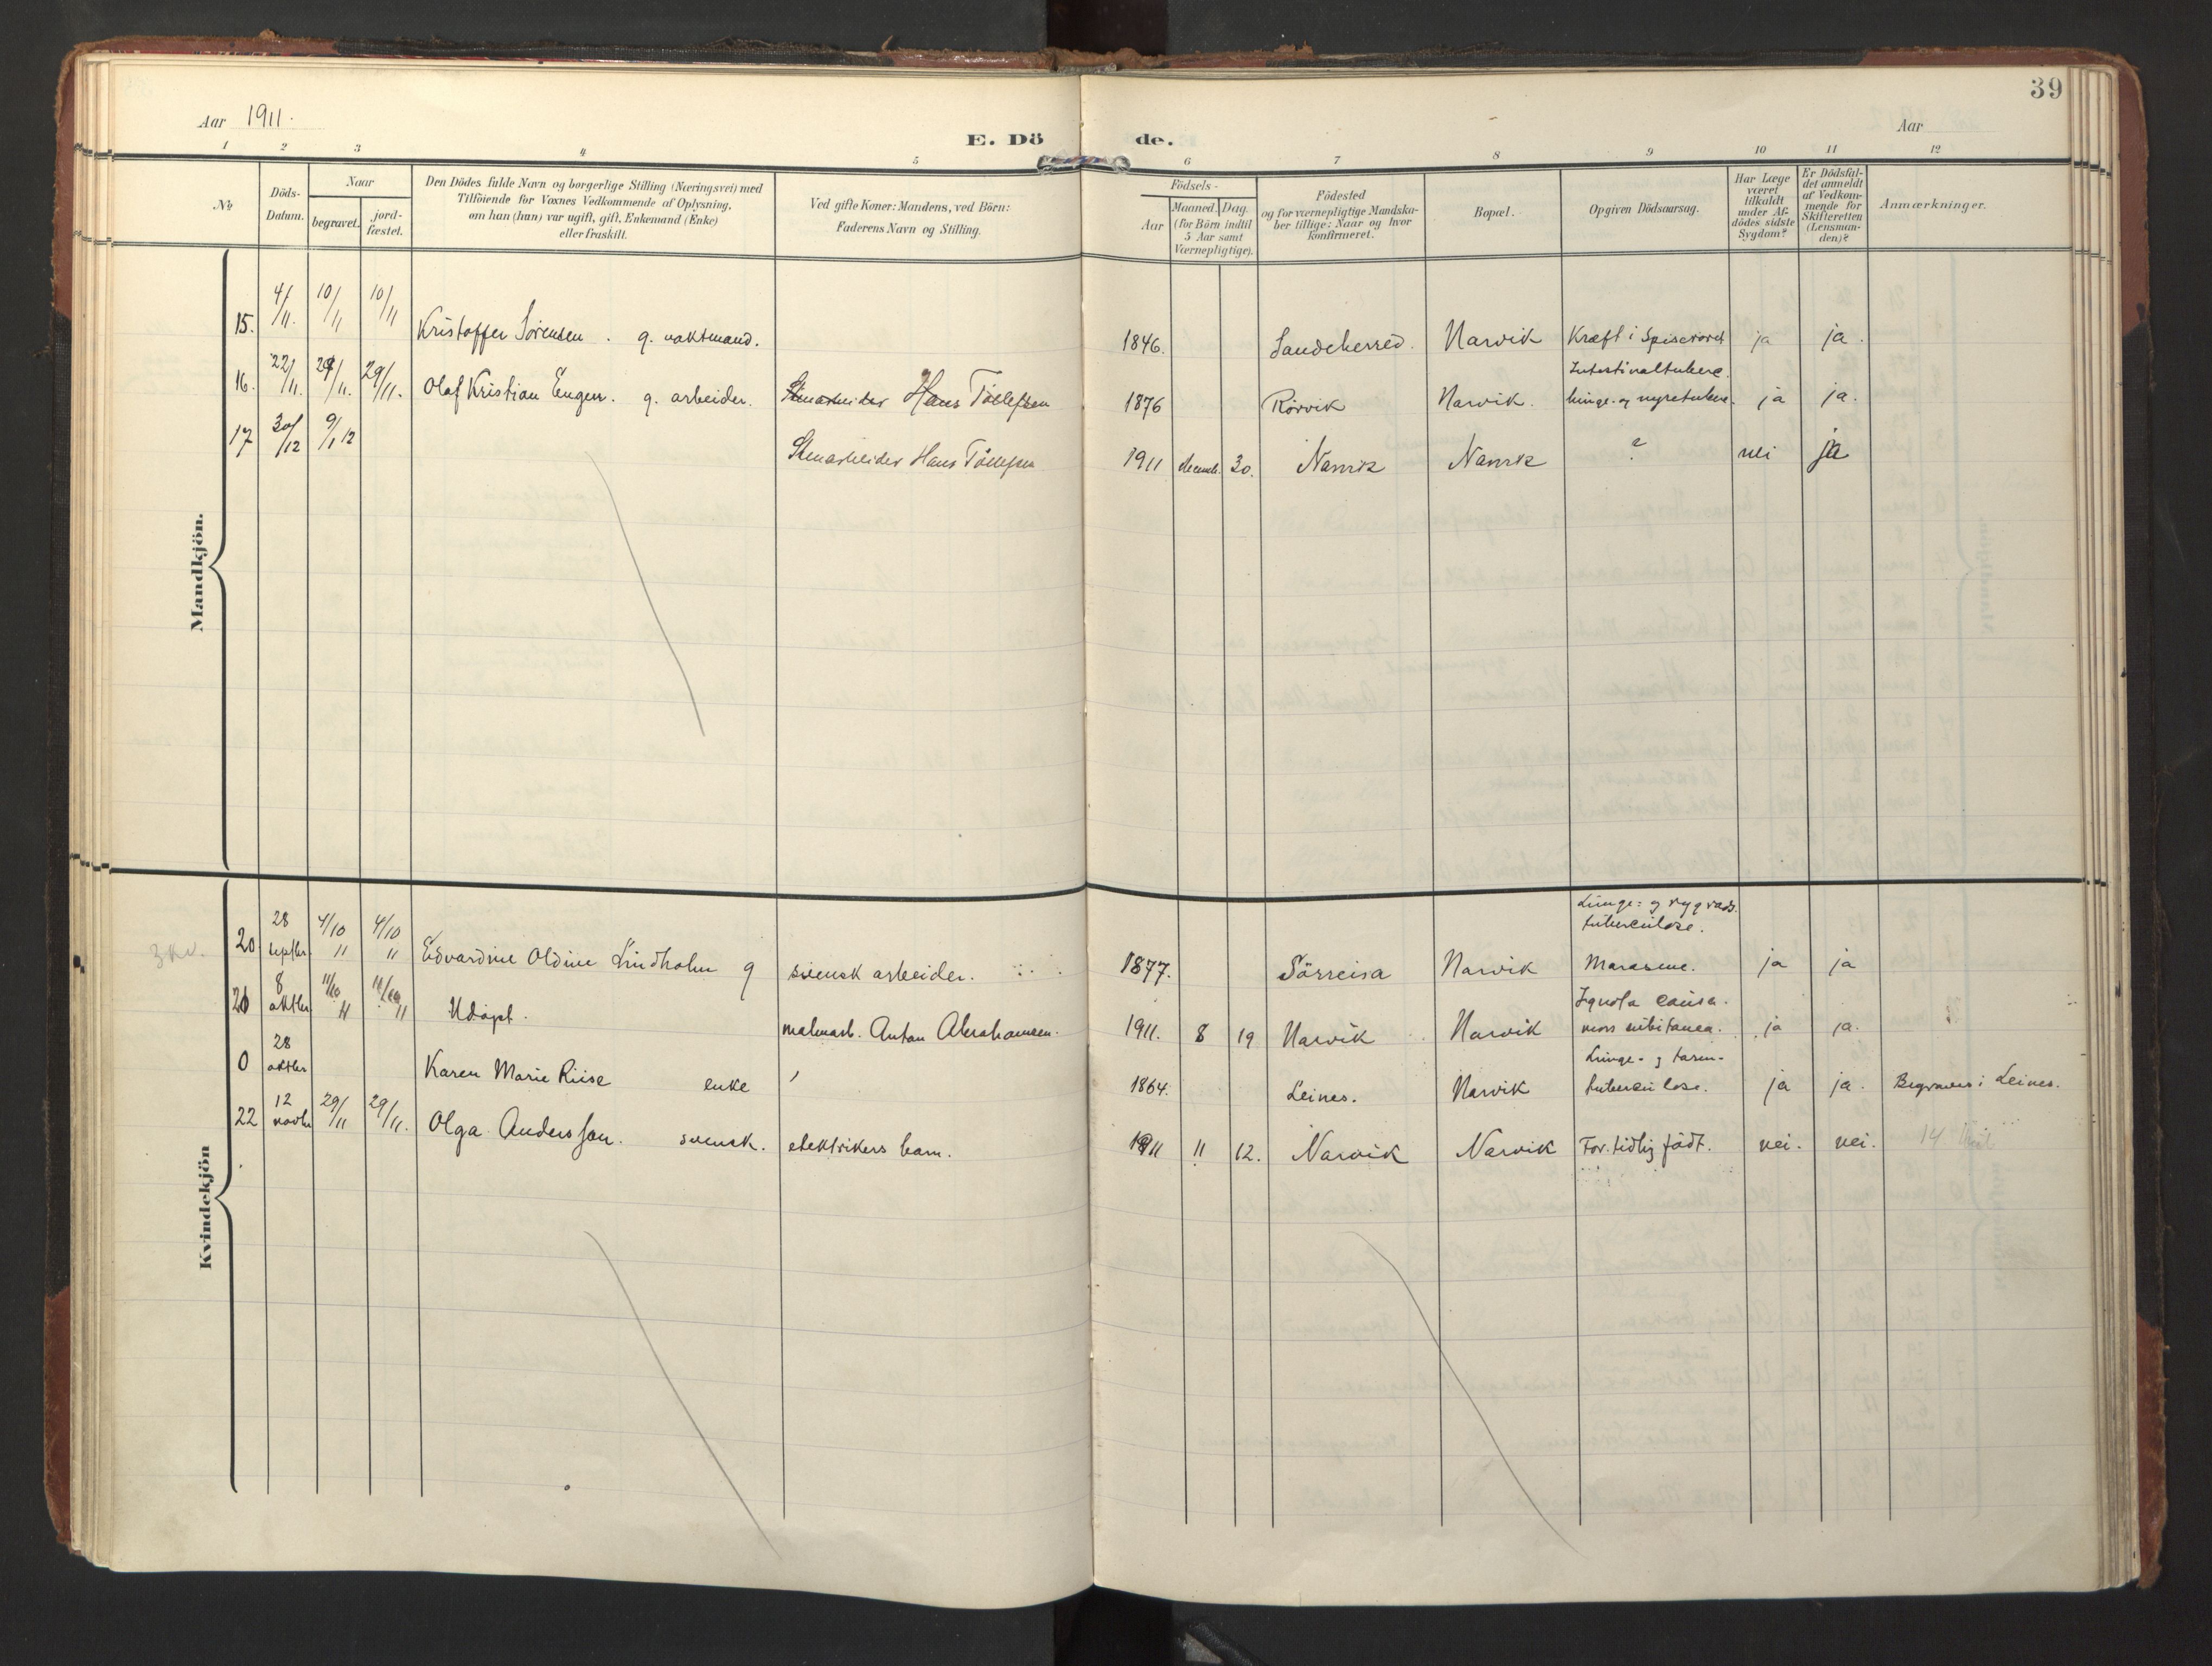 39
Aar 1911.
E. Döde.
Aar
1 2 3 4 5 6 7 8 9 10 11 12
No
Döds-Datum.
Naar
begravet.
jord-fæstet.
Den Dödes fulde Navn og borgerlige Stilling (Næringsvei) med
Tilföiende for Voxnes Vedkommende af Oplysning,
om han (hun) var ugift, gift, Enkemand (Enke)
eller fraskilt.
Ved gifte Koner: Mandens, ved Börn:
Faderens Navn og Stilling.
Födsels-
Aar
Maaned. Dag.
(for Börn indtil
5 Aar samt
Værnepligtige).
Födested
og for værnepligtige Mandska-
ber tillige: Naar og hvor
konfirmeret.
Bopæl.
Opgiven Dödsaarsag.
Har Læge
været
tilkaldt
under Af-
dödes sidste
Sygdom?
Er Dödsfal-
det anmeldt
af Vedkom-
mende for
Skifteretten
(Lensman-
den)?
Anmærkninger.
Mandkjön.
15. 4/11. 10/11 10/11 Kristoffer Sörensen. g. vaktmand. 1846. Sandeherred. Narvik Kræft i Spiserøret ja ja.
16. 22/11. 29/11. 29/11. Olaf Kristian Engen. g. arbeider. Stenarbeider Hans Töllefsen 1876 Rörvik Narvik. Intestinaltuberc. lunge- og nyretuberc. ja ja.
17 30/12 9/1 12 Stenarbeider Hans Töllefsen 1911 decemb. 30. Narvik Narvik ? nei ja
Kvindekjön
3 kv. 20 28 septbr. 4/10 11 4/10 11 Edvardine Oldine Lindholm g svensk arbeider. 1877. Sörreisa Narvik Lunge- og rygrads. tuberculose. Marasme. ja ja
21 8 oktbr 11/10 11 11/10 11 Udöpt. malmarb. Anton Abrahamsen. 1911. 8 19 Narvik Narvik Ignota causa. mors subitanea. ja ja.
0 28 oktbr Karen Marie Riise enke 1864. Leines. Narvik Lunge- og tarm- tuberculose. ja ja. Begraves i Leines.
22 12 novbr 29/11 29/11. Olga Andersson. svensk. elektrikers barn. 1911 11 12. Narvik Narvik For tidlig födt. nei. nei. 14